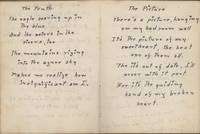 The Truth
The eagle soaring up in
the blue,
And the waters in the
rivers, too
The mountains rising
into the azure sky
Makes me realize how
insignificant am I.
The Picture
There's a picture, hanging
on my bedroom wall
It's the picture of my
sweetheart, the best
one of them all.
Tho it's out of date, I'll
never with it part.
For it's the guiding
hand of my broken
heart.